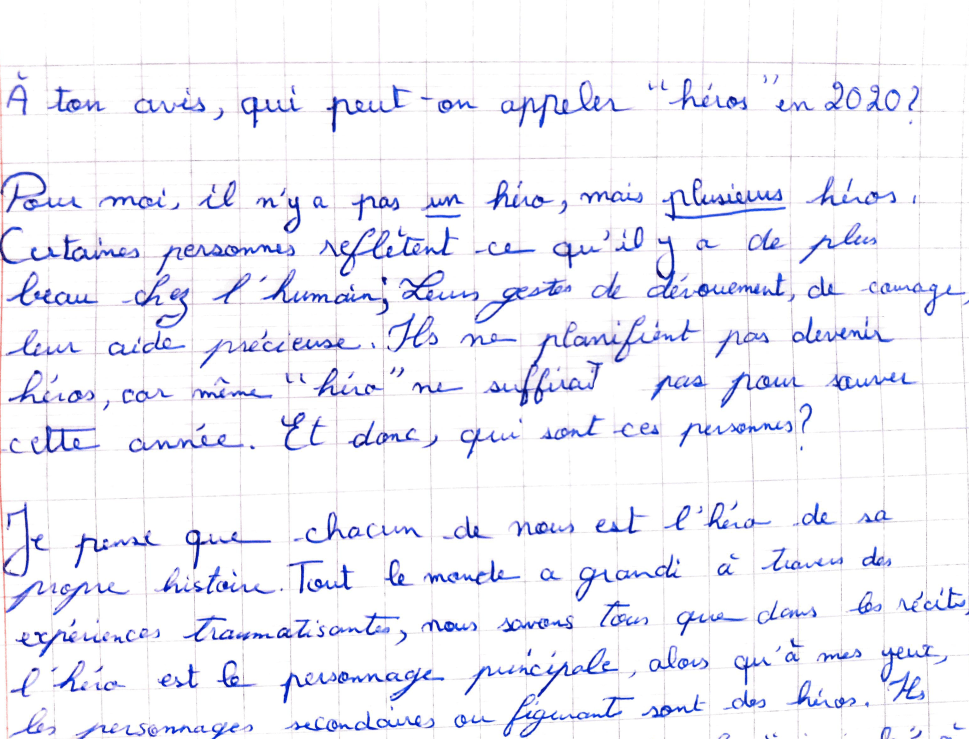 À ton avis, qui peut-on appeler "héros" en 2020?
Pour moi, il n'y a pas un héro, mais plusieurs héros.
Certaines personnes reflètent ce qu'il y a de plus
beau chez l'humain; Leurs gestes de dévouement, de courage,
leur aide précieuse. Ils ne planifient pas devenir
héros, car même "héro" ne suffirait pas pour sauver
cette année. Et donc, qui sont ces personnes?
Je pense que chacun de nous est l'héro de sa
propre histoire. Tout le monde a grandi à travers des
expériences traumatisantes, nous savons tous que dans les récits,
l'héro est le personnage principale, alors qu'à mes yeux,
les personnages secondaires ou figurants sont des héros. Ils